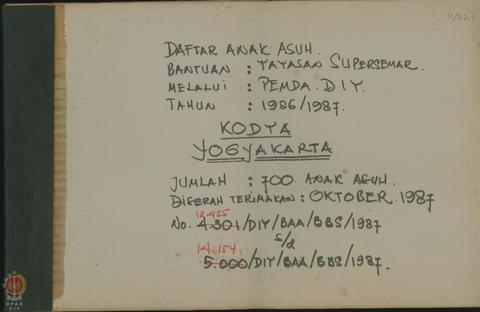 DAFTAR ANAK ASUH.
BANTUAN : YAYASAN SUPERSEMAR.
MELALUI : PEMDA. DIY.
TAHUN : 1986/1987.
KODYA
YOGYAKARTA
JUMLAH : 700 ANAK ASUH.
DISERAH TERIMAKAN : OKTOBER 1987
13.455
No. 4.301/DIY/BAA/BBS/1987
S/d
14.154
5.000/DIY/BAA/BBS/1987.
DPAD
DIY